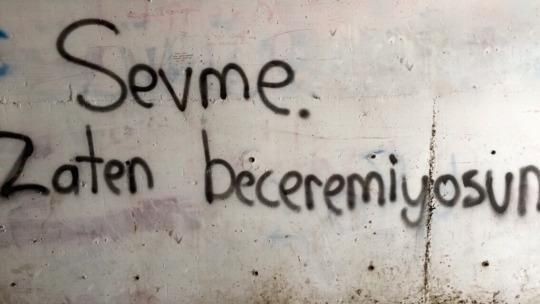 Sevme.
Zaten beceremiyosun